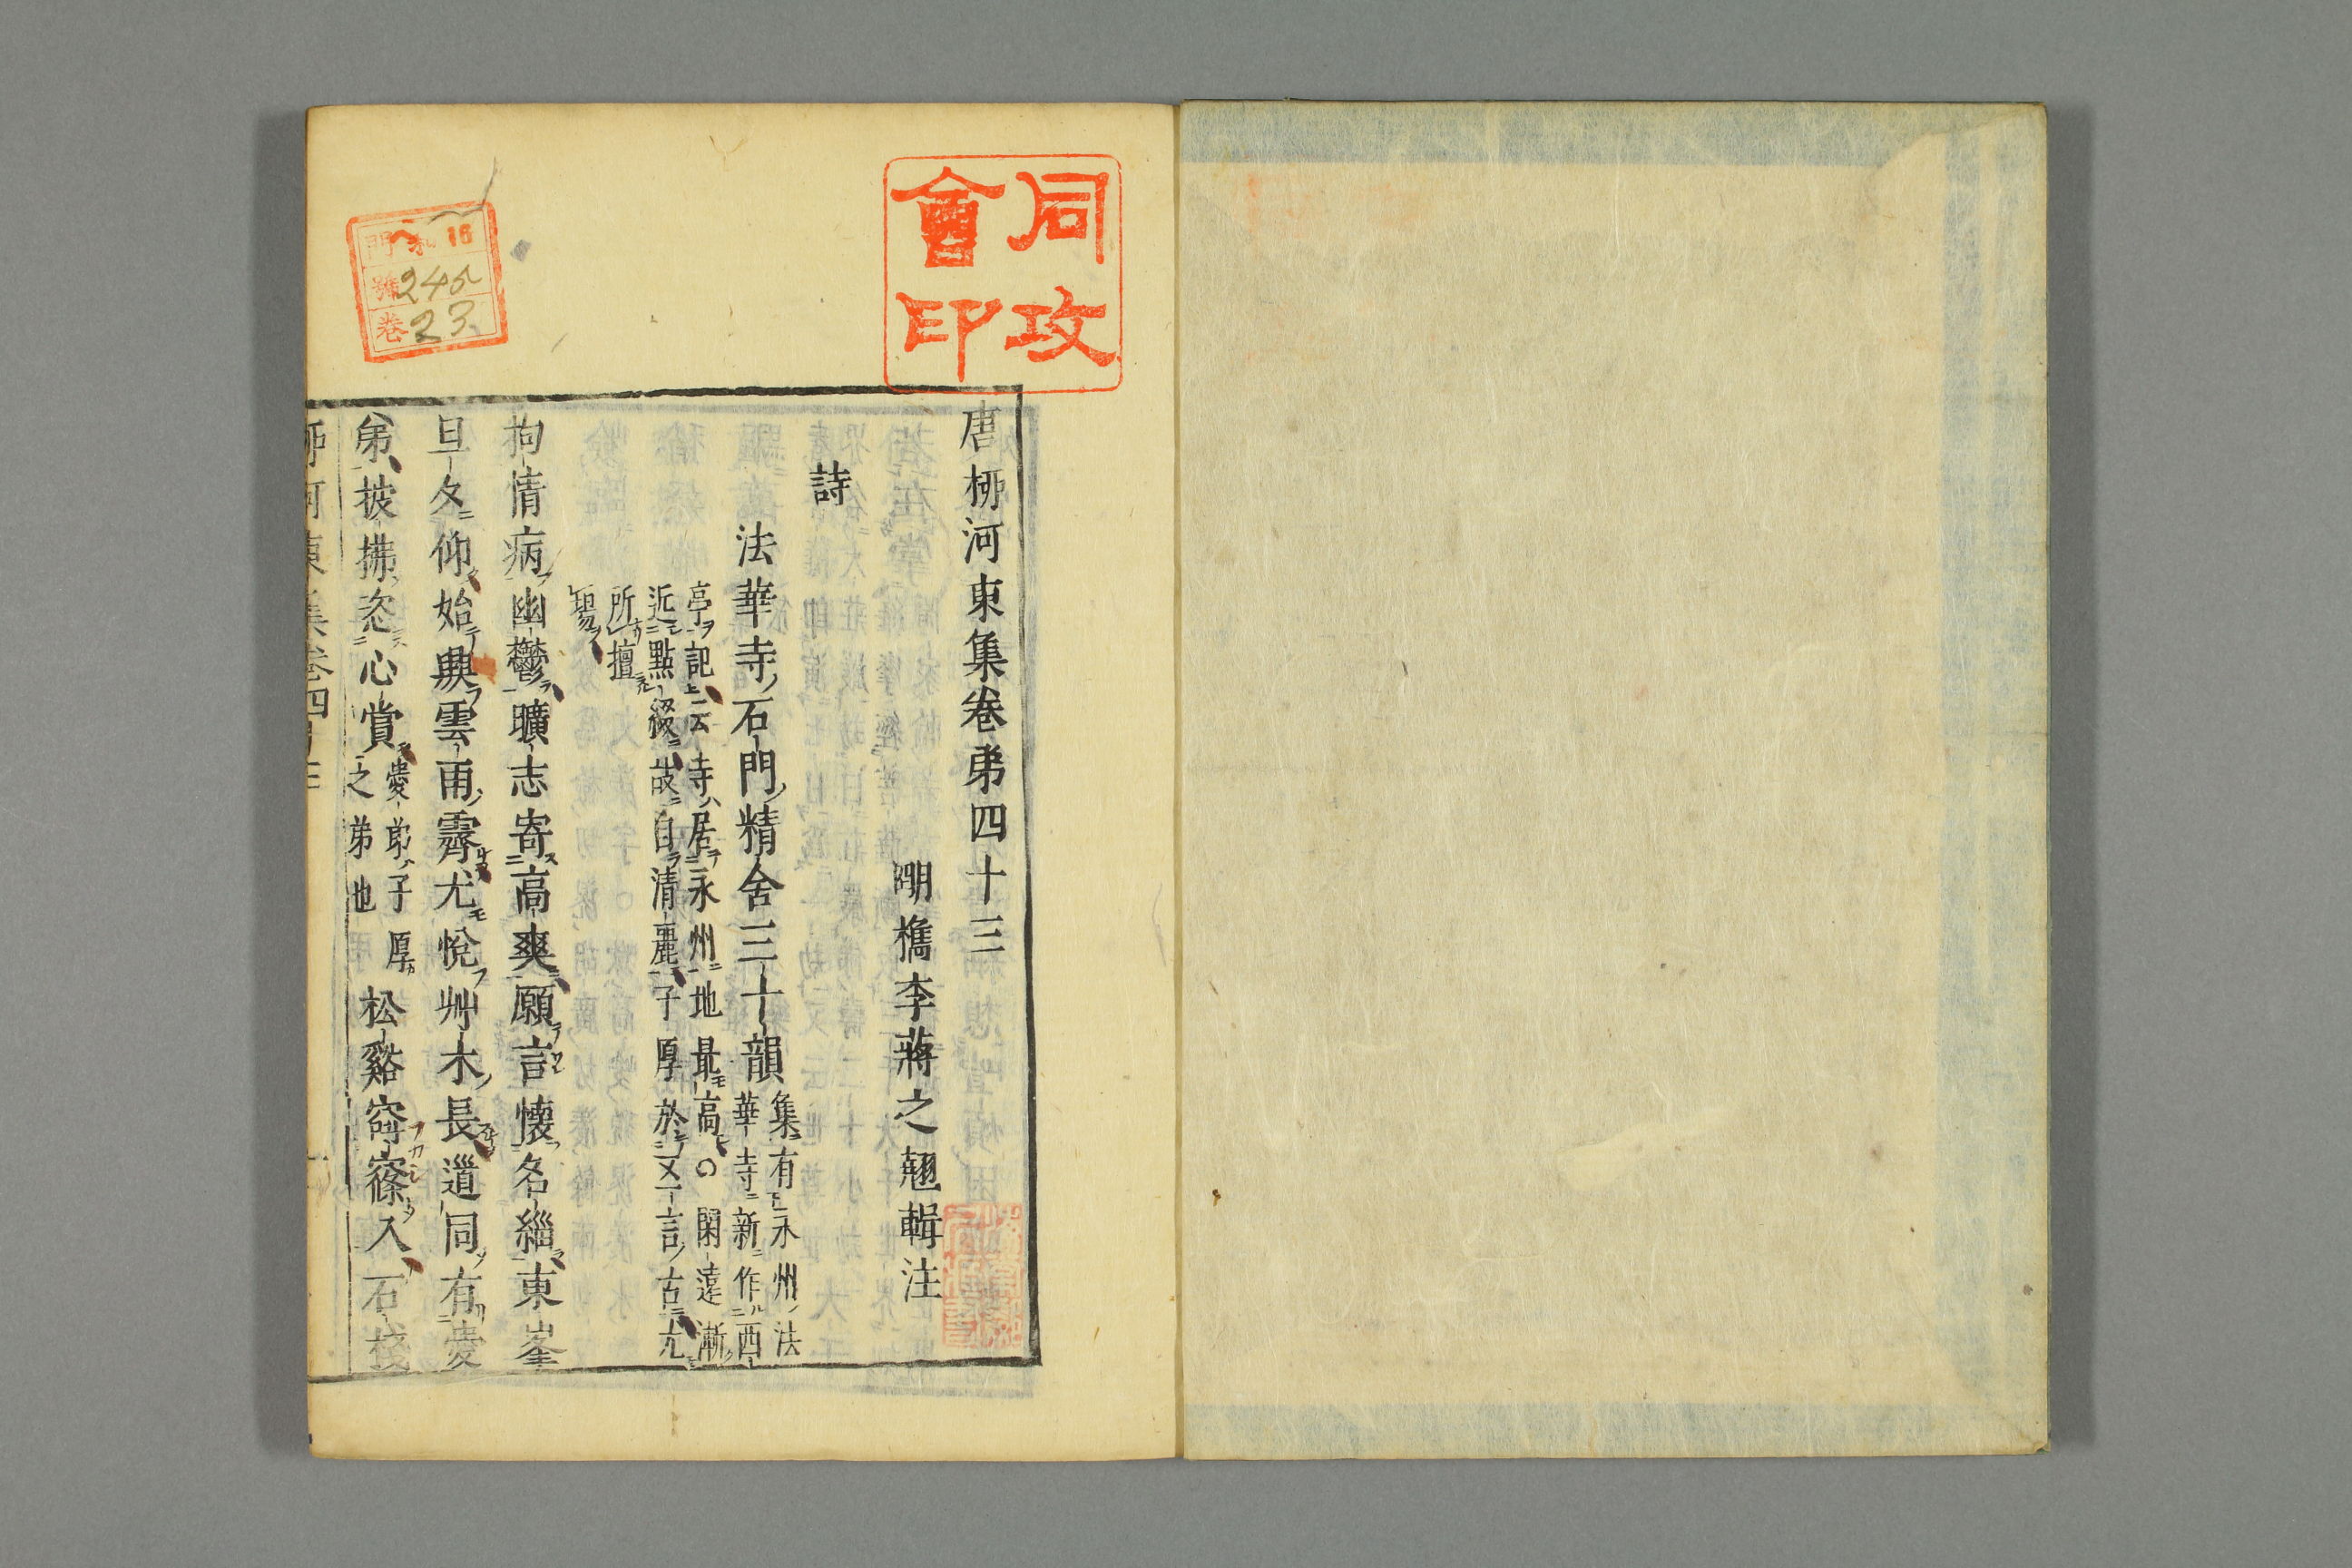 同攻
會印
門 16
號 245
卷 23
唐柳河東集卷第四十三
明檇李蔣之翹輯注
詩
法華寺石門精舍三十韻
集有永州法
華寺新作西
亭記云寺居永州地最高○閑遠漸
近點綴故自清麗子厚於五言古尤
所擅
場
拘情病幽鬱曠志寄高爽願言懷名緇東峯
旦夕仰始興雲雨霽尤悅艸木長道同有愛
弟披拂恣心賞
愛弟子厚
之弟也
松谿窈窱入石棧
柳河東集卷四十三
一